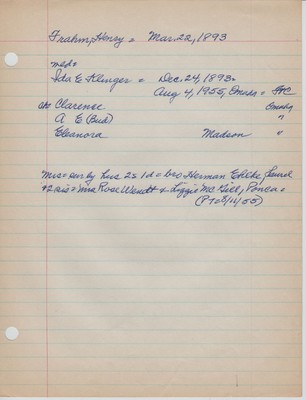 Frahm, Henry = Mar. 22, 1893
Ida E Klinger = Dec. 24, 1893
Aug 4, 1955, Omaha =
ch= Clarence Omaha,
A E (Bud) "
Eleanora Madison "
Mrs = sur by hus 2s 1d = bro Herman Ehlke, Laurel
+2 sis = Mrs Rose Wendt & Lizzie Mc Gill, Ponca =